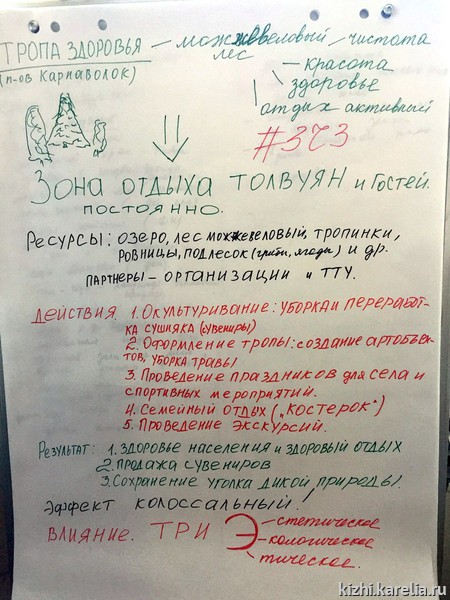 ТРОПА ЗДОРОВЬЯ – можжевеловый лес – чистота
(п-ов КАРНАВОЛОК)
– красота
здоровье
отдых активный
#3С3
ЗОНА ОТДЫХА ТОЛВУЯН и Гостей.
ПОСТОЯННО.
РЕСУРСЫ: ОЗЕРО, ЛЕС МОЖЖЕВЕЛОВЫЙ, ТРОПИНКИ,
РОВНИЦЫ, ПОДЛЕСОК (грибы, ягоды) и др.
ПАРТНЕРЫ – ОРГАНИЗАЦИИ и ТТУ.
ДЕЙСТВИЯ 1. Окультуривание: УБОРКА и ПЕРЕРАБОТ-
КА СУШНЯКА (сувениры)
2. Оформление тропы: создание артобъек-
тов, уборка травы
3. Проведение праздников для села и
спортивных мероприятий.
4. Семейный отдых („костерок")
5. Проведение экскурсий.
Результат: 1. Здоровье населения и здоровый отдых
2. Продажа сувениров
3. Сохранение уголка дикой природы.
ЭФФЕКТ КОЛОССАЛЬНЫЙ!
ВЛИЯНИЕ. ТРИ Э – стетическое
– кологическое
тическое.
kizhi.karelia.ru